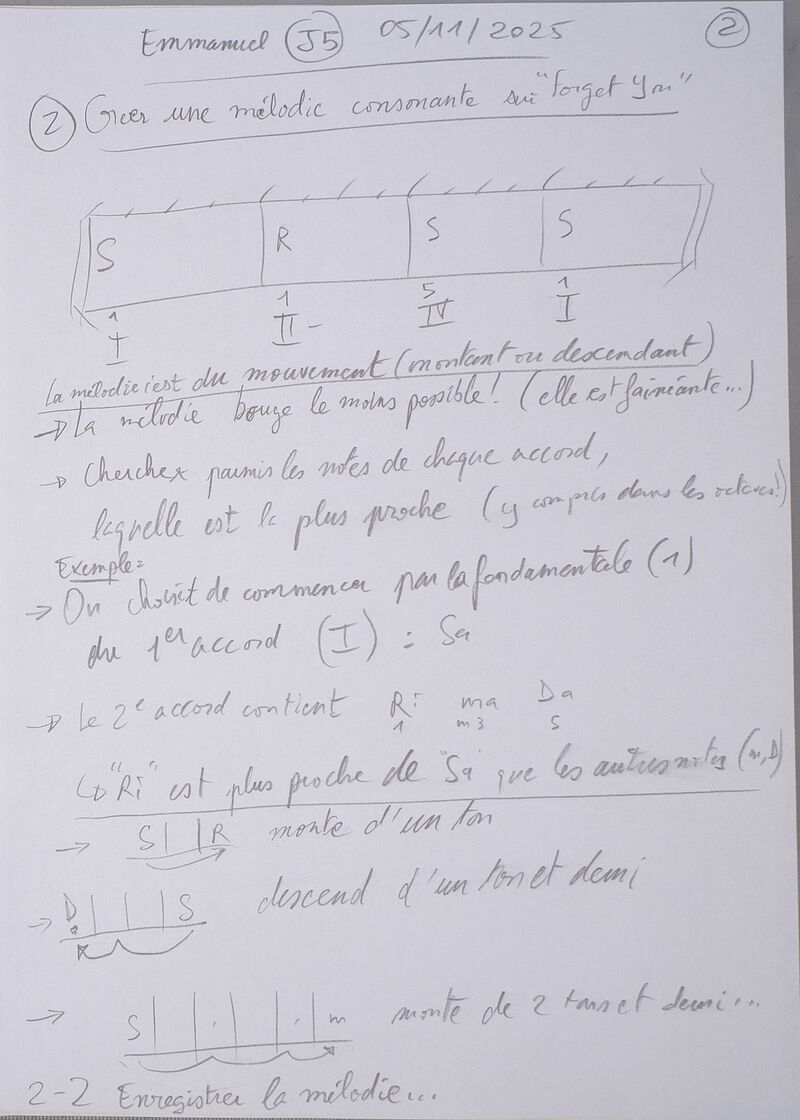 Emmanuel J5 05/11/2025 2
2 Créer une mélodie consonante sur "Forget You"
S R S S
1 1 5 1
I II- IV I
La mélodie c'est du mouvement (montant ou descendant)
→ La mélodie bouge le moins possible! (elle est fainéante...)
→ Cherchez parmis les notes de chaque accord,
laquelle est la plus proche (y compris dans les octaves!)
Exemple:
→ On choisit de commencer par la fondamentale (1)
du 1er accord (I) : Sa
→ Le 2e accord contient Ri ma Da
1 m3 5
↳ "Ri" est plus proche de "Sa" que les autres notes (m,D)
→ S R monte d'un ton
→ D S descend d'un ton et demi
→ S m monte de 2 tons et demi...
2-2 Enregistrer la mélodie...